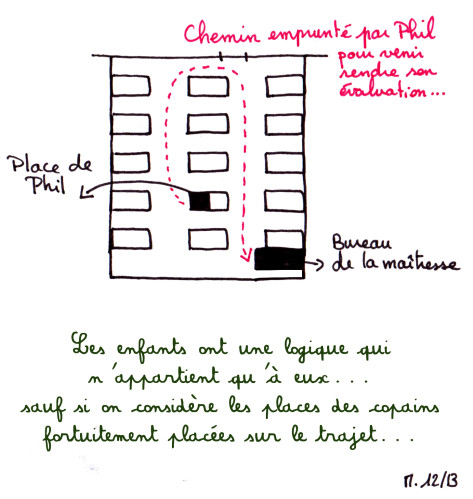 Chemin emprunté par Phil
pour venir
rendre son
évaluation...
Place de
Phil
Bureau
de la maîtresse
Les enfants ont une logique qui
n'appartient qu'à eux...
sauf si on considère les places des copains
fortuitement placées sur le trajet...
M. 12/13